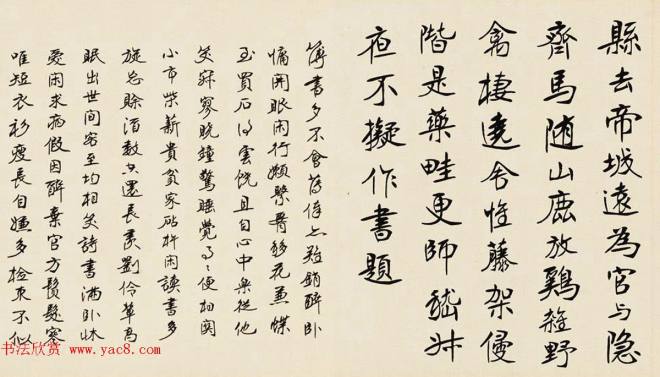 縣去帝城遠為官与隐
齊馬随山鹿放鷄雜野
禽棲遶舍惟藤架侵
階是藥畦更師嵇叔
夜不擬作書題
簿書多不會薄俸亦難銷醉卧
慵開眼闲行嬾繫腰移花兼蝶
至買石得雲饒且自心中樂從他
笑寂寥晚鐘驚睡覺事々便相関
小市柴薪貴貧家砧杵闲讀書多
旋忘賒酒數空還長羨劉伶輩高
眠出世間客至均相笑詩書满卧床
愛闲求病假因醉棄官方鬢髮寒
唯短衣衫瘦長自嫌多檢束不似
书法欣赏 www.yac8.com